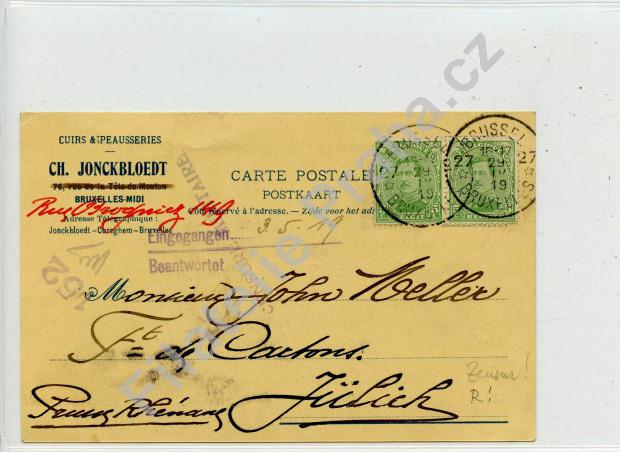 CUIRS & PEAUSSERIES
CH. JONCKBLOEDT
76, rue de la Tête de Mouton
BRUXELLES-MIDI
Adresse Télégraphique :
Jonckbloedt - Cureghem - Bruxelles
CARTE POSTALE
POSTKAART
Côté réservé à l'adresse. — Zijde voor het adr
BRUSSEL
27 29 27
IV
19
BRUXELLES
Eingegangen
3.5.19
Beantwortet
152
Monsieur John Meller
Ft de Cartons.
Jülich
Prusse Rhénane
Zensur!
R!
Filatelie Praha.cz